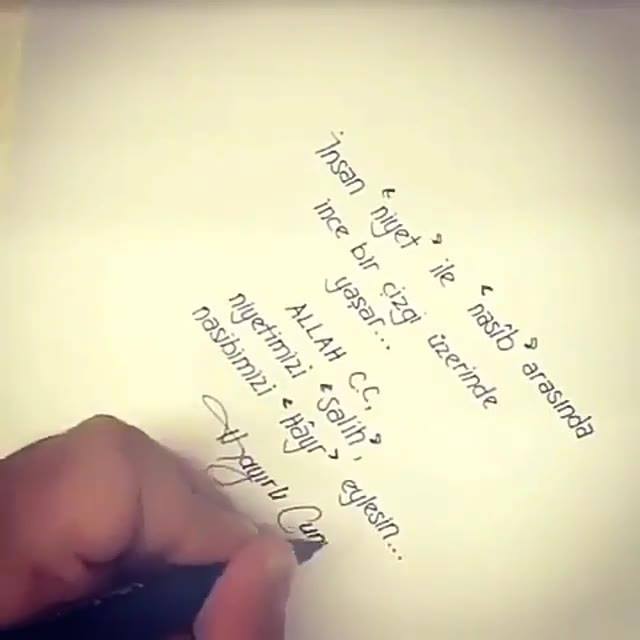 İnsan “niyet” ile “nasîb” arasında
ince bir çizgi üzerinde
yaşar...
ALLAH C.C,
niyetimizi “Salih”,
nasibimizi “Hâyr” eylesin...
Hayırlı Cum